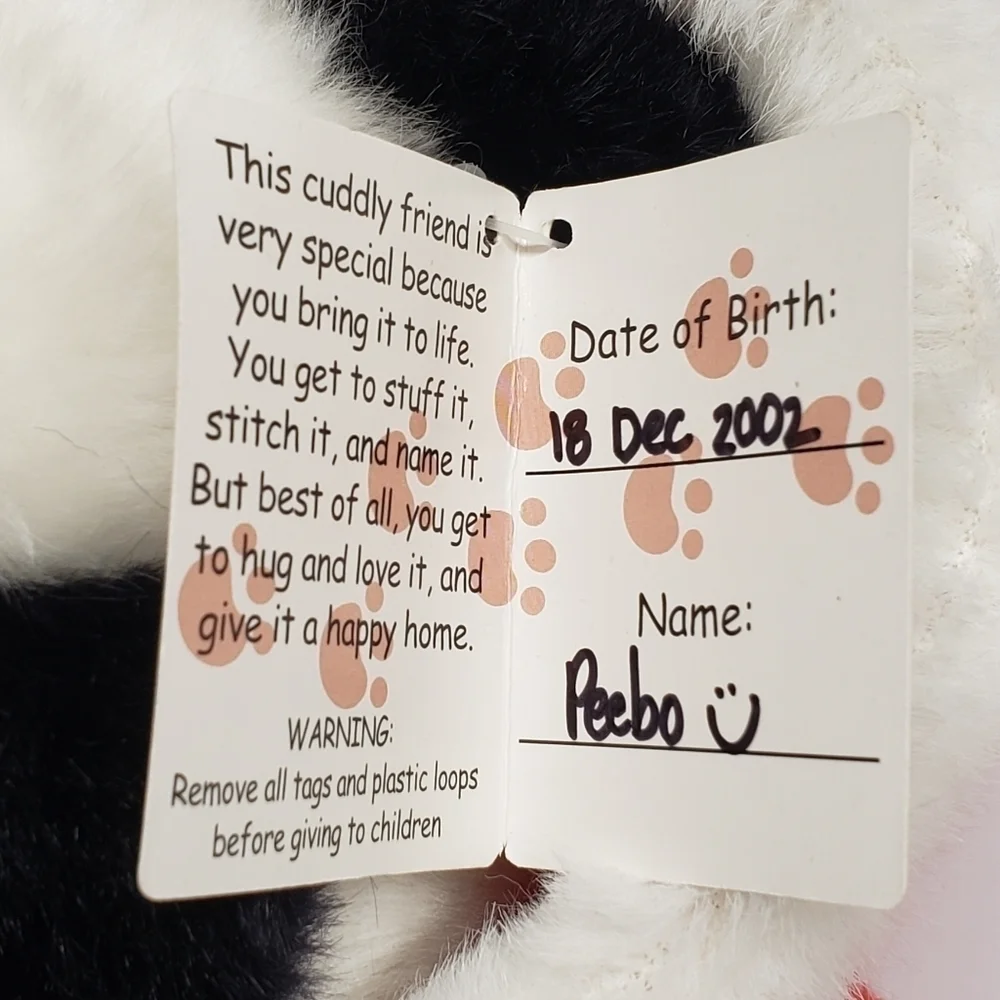 This cuddly friend is
very special because
you bring it to life.
You get to stuff it,
stitch it, and name it.
But best of all, you get
to hug and love it, and
give it a happy home.
WARNING:
Remove all tags and plastic loops
before giving to children
Date of Birth:
18 Dec 2002
Name:
Peebo